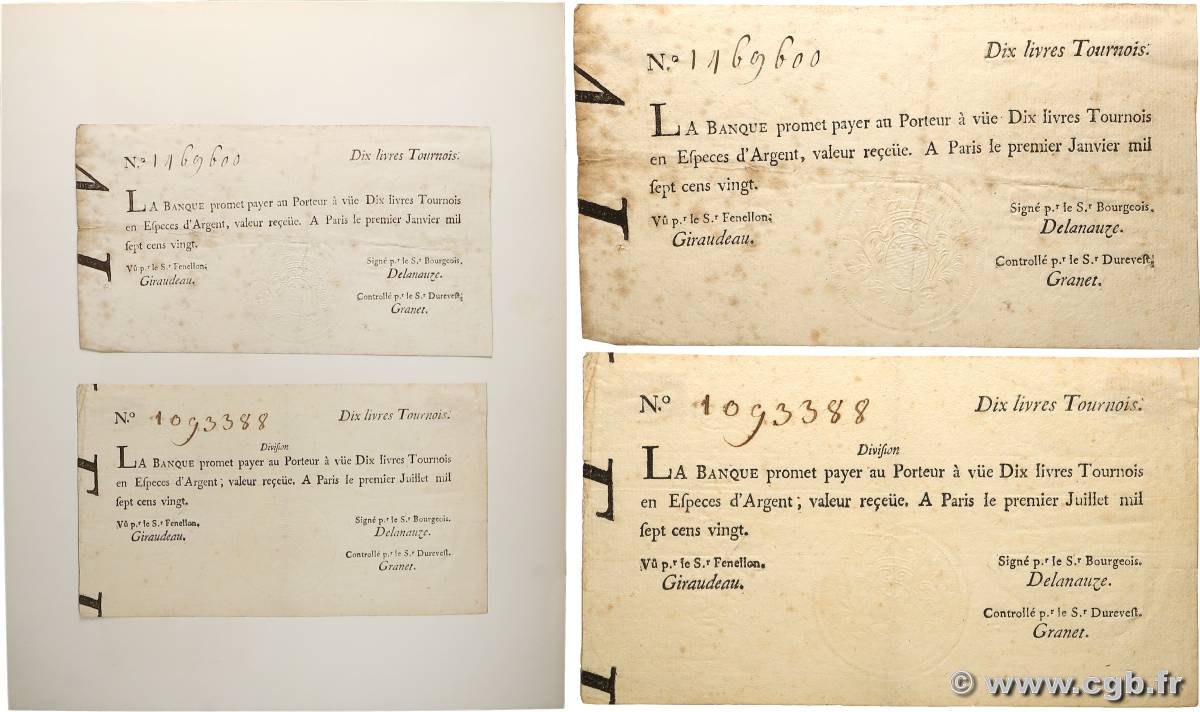 N.º 1469600 Dix livres Tournois.
LA BANQUE promet payer au Porteur à vüe Dix livres Tournois
en Eſpeces d'Argent, valeur reçeüe. A Paris le premier Janvier mil
ſept cens vingt.
Vû p.r le S.r Fenellon; Signé p.r le S.r Bourgeois.
Giraudeau. Delanauze.
Controllé p.r le S.r Dureveſt;
Granet.
N.º 1093388 Dix livres Tournois.
Diviſion
LA BANQUE promet payer au Porteur à vüe Dix livres Tournois
en Eſpeces d'Argent; valeur reçeüe. A Paris le premier Juillet mil
ſept cens vingt.
Vû p.r le S.r Fenellon. Signé p.r le S.r Bourgeois.
Giraudeau. Delanauze.
Controllé p.r le S.r Dureveſt.
Granet.
N.º 1469600 Dix livres Tournois.
LA BANQUE promet payer au Porteur à vüe Dix livres Tournois
en Eſpeces d'Argent, valeur reçeüe. A Paris le premier Janvier mil
ſept cens vingt.
Vû p.r le S.r Fenellon; Signé p.r le S.r Bourgeois.
Giraudeau. Delanauze.
Controllé p.r le S.r Dureveſt;
Granet.
N.º 1093388 Dix livres Tournois.
Diviſion
LA BANQUE promet payer au Porteur à vüe Dix livres Tournois
en Eſpeces d'Argent; valeur reçeüe. A Paris le premier Juillet mil
ſept cens vingt.
Vû p.r le S.r Fenellon. Signé p.r le S.r Bourgeois.
Giraudeau. Delanauze.
Controllé p.r le S.r Dureveſt.
Granet.
© www.cgb.fr